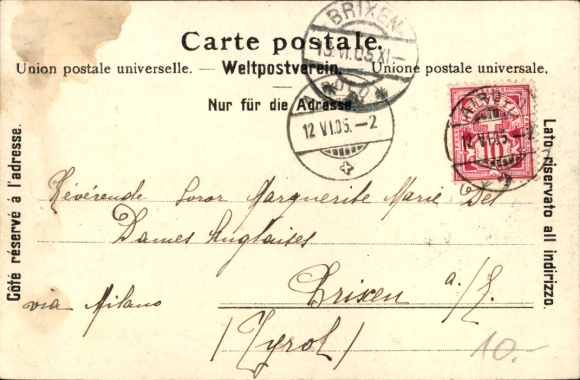 BRIXEN
13.VI.05.XI-
Carte postale.
Union postale universelle. — Weltpostverein. — Unione postale universale.
Nur für die Adresse.
12 VI.05.—2
HELVETIA
12 VI.05.—2
10
Côté réservé à l'adresse.
Lato riservato all indirizzo.
Révérende Soror Marguerite Marie Del
Dames Anglaises
via Milano
Brixen a./E.
(Tyrol)
10.-